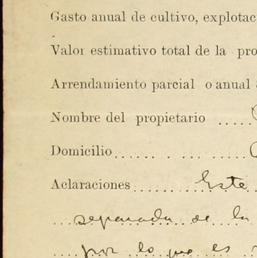 Gasto anual de cultivo, explotac
Valor estimativo total de la pro
Arrendamiento parcial o anual
Nombre del propietario ....
Domicilio.........
Aclaraciones ..... Este
separada de la
por lo que es